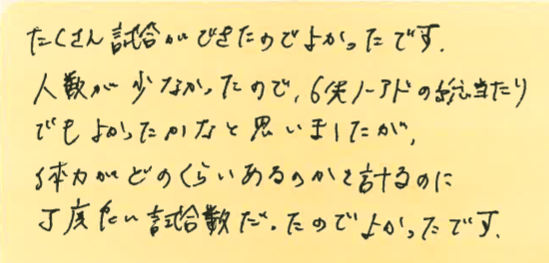 たくさん試合ができたのでよかったです.
人数が少なかったので,6先ノーアドの総当たり
でもよかったかなと思いましたが,
体力がどのくらいあるのかを計するのに
丁度良い試合数だったのでよかったです.